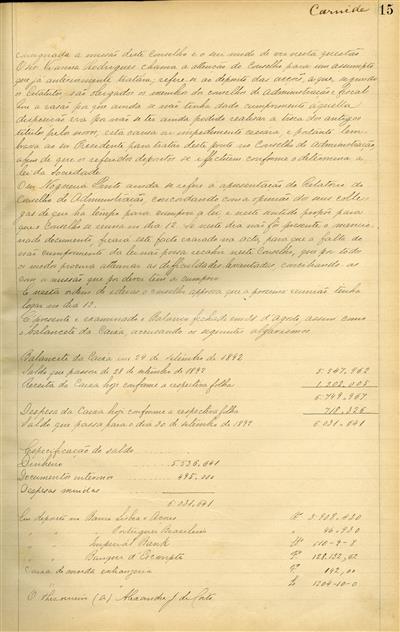 Carnide 15
consignada a missão deste Conselho e o seu modo de ver nesta questão
O Snr. Vianna Rodrigues chama a attenção do Conselho para um assumpto
que já anteriormente tratara, refere-se ao deposito das acções, a que, segundo
os Estatutos, são obrigados os membros do conselho de administração e fiscal
era a rasão por que ainda se não tenha dado cumprimento áquella
disposição era por não se ter ainda podido realisar a troca dos antigos
titulos pelos novos, esta causa ou impedimento cessara, e portanto lem-
brava ao snr Presidente para tratar deste ponto no Conselho de administração,
afim de que os referidos depositos se effectuem conforme o determina a
lei da Sociedade
O snr. Nogueira Pinto ainda se refere a apresentação do Relatorio do
Conselho de Administração, concordando com a opinião dos seus colle-
gas de que ha tempo para cumprir a lei, e neste sentido propõe para
que o Conselho se reuna no dia 12. Se neste dia não for presente o mencio-
nado documento, ficará este facto exarado na acta, para que a falta do
não cumprimento da lei não possa recahir neste Conselho, que por todos
os modos procura attenuar as difficuldades levantadas, conciliando-as
com a missão que por dever tem a cumprir
E nesta ordem de ideias o conselho approva que a proxima reunião tenha
logar no dia 12.
É presente e examinado o Balanço fechado em 31 d'Agosto, assim como
o balancete da Caixa, accusando os seguintes algarismos.
Balancete da Caixa em 29 de setembro de 1892
Saldo que passou de 28 de setembro de 1892 5.547,962
Receita da Caixa hoje conforme a respectiva folha 1.202,005
6.749,967
Despesa da Caixa hoje conforme a respectiva folha 718,326
Saldo que passa para o dia 30 de setembro de 1892 6.031,641
Especificação do saldo
Dinheiro 5.536,641
Documentos internos 495,000
Despesas miudas
6.031,641
Em deposito no Banco Lisboa e Açores 3.908,430
" " " Portuguez Brasileiro " 46,930
" " " Imperial Bank £ 110-9-8
" " " Banque d'Escompte F. 128.132,02
Caixa de moeda estrangeira F. 142,00
" " " £ 1204-10-0
O thesoureiro (a) Alexandre J. da Costa